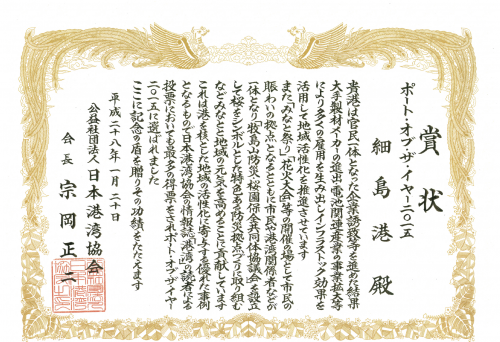 賞状
ポート・オブ・ザ・イヤー二〇一五
細島港殿
貴港は官民一体となった企業誘致等を進めた結果
大手製材メーカーの進出、電池関連産業の事業拡大等
により多くの雇用を生み出しインフラストック効果を
活用して地域活性化を推進させています
また「みなと祭り」「花火大会」等の開催の場として市民の
賑わいの拠点となるとともに市民や港湾関係者などが
一体となり「牧島山防災・桜園保全共同体協議会」を設立
して桜をシンボルとした特色ある防災拠点づくりに取り組む
などみなとと地域の元気を高めることに貢献しています
これは港を核とした地域の活性化に寄与する優れた事例
となるもので日本港湾協会の情報誌「港湾」の読者による
投票においても最多の得票をされポートオブザイヤー
二〇一五に選ばれました
ここに記念の盾を贈りその功績をたたえます
平成二十八年一月二十日
公益社団法人日本港湾協会
会長 宗岡正二